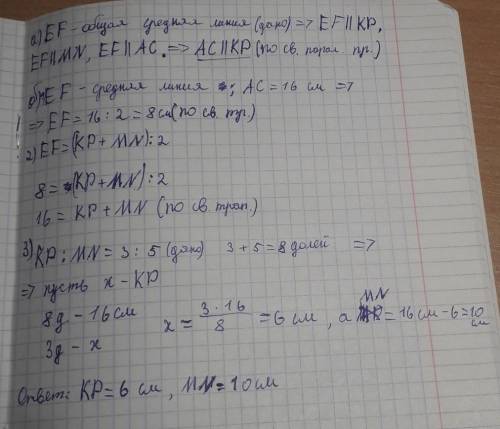 а) EF - общая средняя линия (дано) => EF || KP,
EF || MN, EF || AC. => AC || KP (по св. парал. пр.)
EF - средняя линия ; AC = 16 см =>
=> EF = 16 : 2 = 8 см (по св. тр.)
2) EF = (KP + MN) : 2
8 = (KP + MN) : 2
16 = KP + MN (по св. трап.)
3) KP : MN = 3 : 5 (дано) 3 + 5 = 8 долей =>
=> пусть x - KP
8д - 16 см
3д - x
x = 3 · 16 / 8 = 6 см, а MN = 16 см - 6 = 10 см
Ответ: KP = 6 см, MN = 10 см